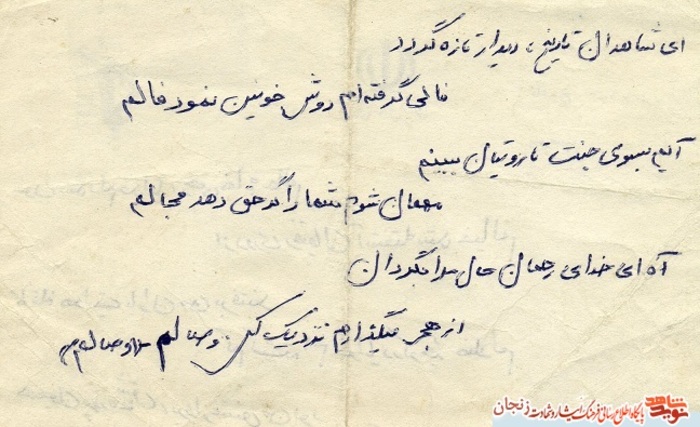 ای شاهدان تاریخ، دیدار تازه گردد
فالی گرفته‌ام دوش خونین نمود فالم
آیم بسوی جنت تا رویتان ببینم
مهمان شوم شما را گر حق دهد مجالم
آه ای خدای رحمان حال مرا بگردان
از هجر میگذارم نزدیک کن وصالم
شاهد
نوید
پایگاه اطلاع رسانی فرهنگ ایثار و شهادت زنجان